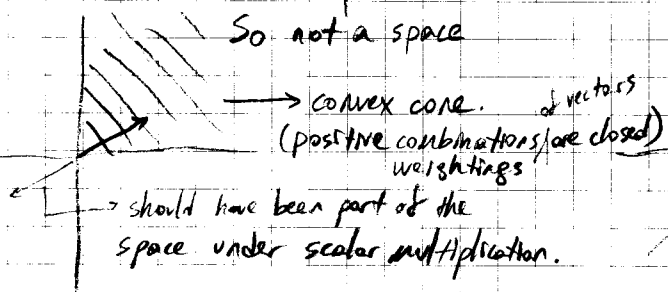 So not a space
→ convex cone.
of vectors
(positive combinations/are closed)
weightings
→ should have been part of the
space under scalar multiplication.